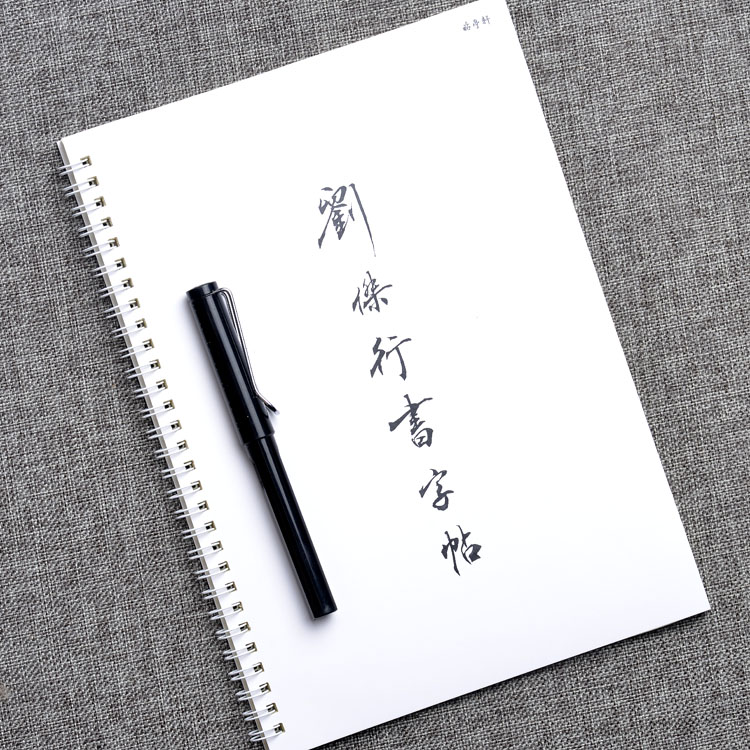 劉傑行書字帖